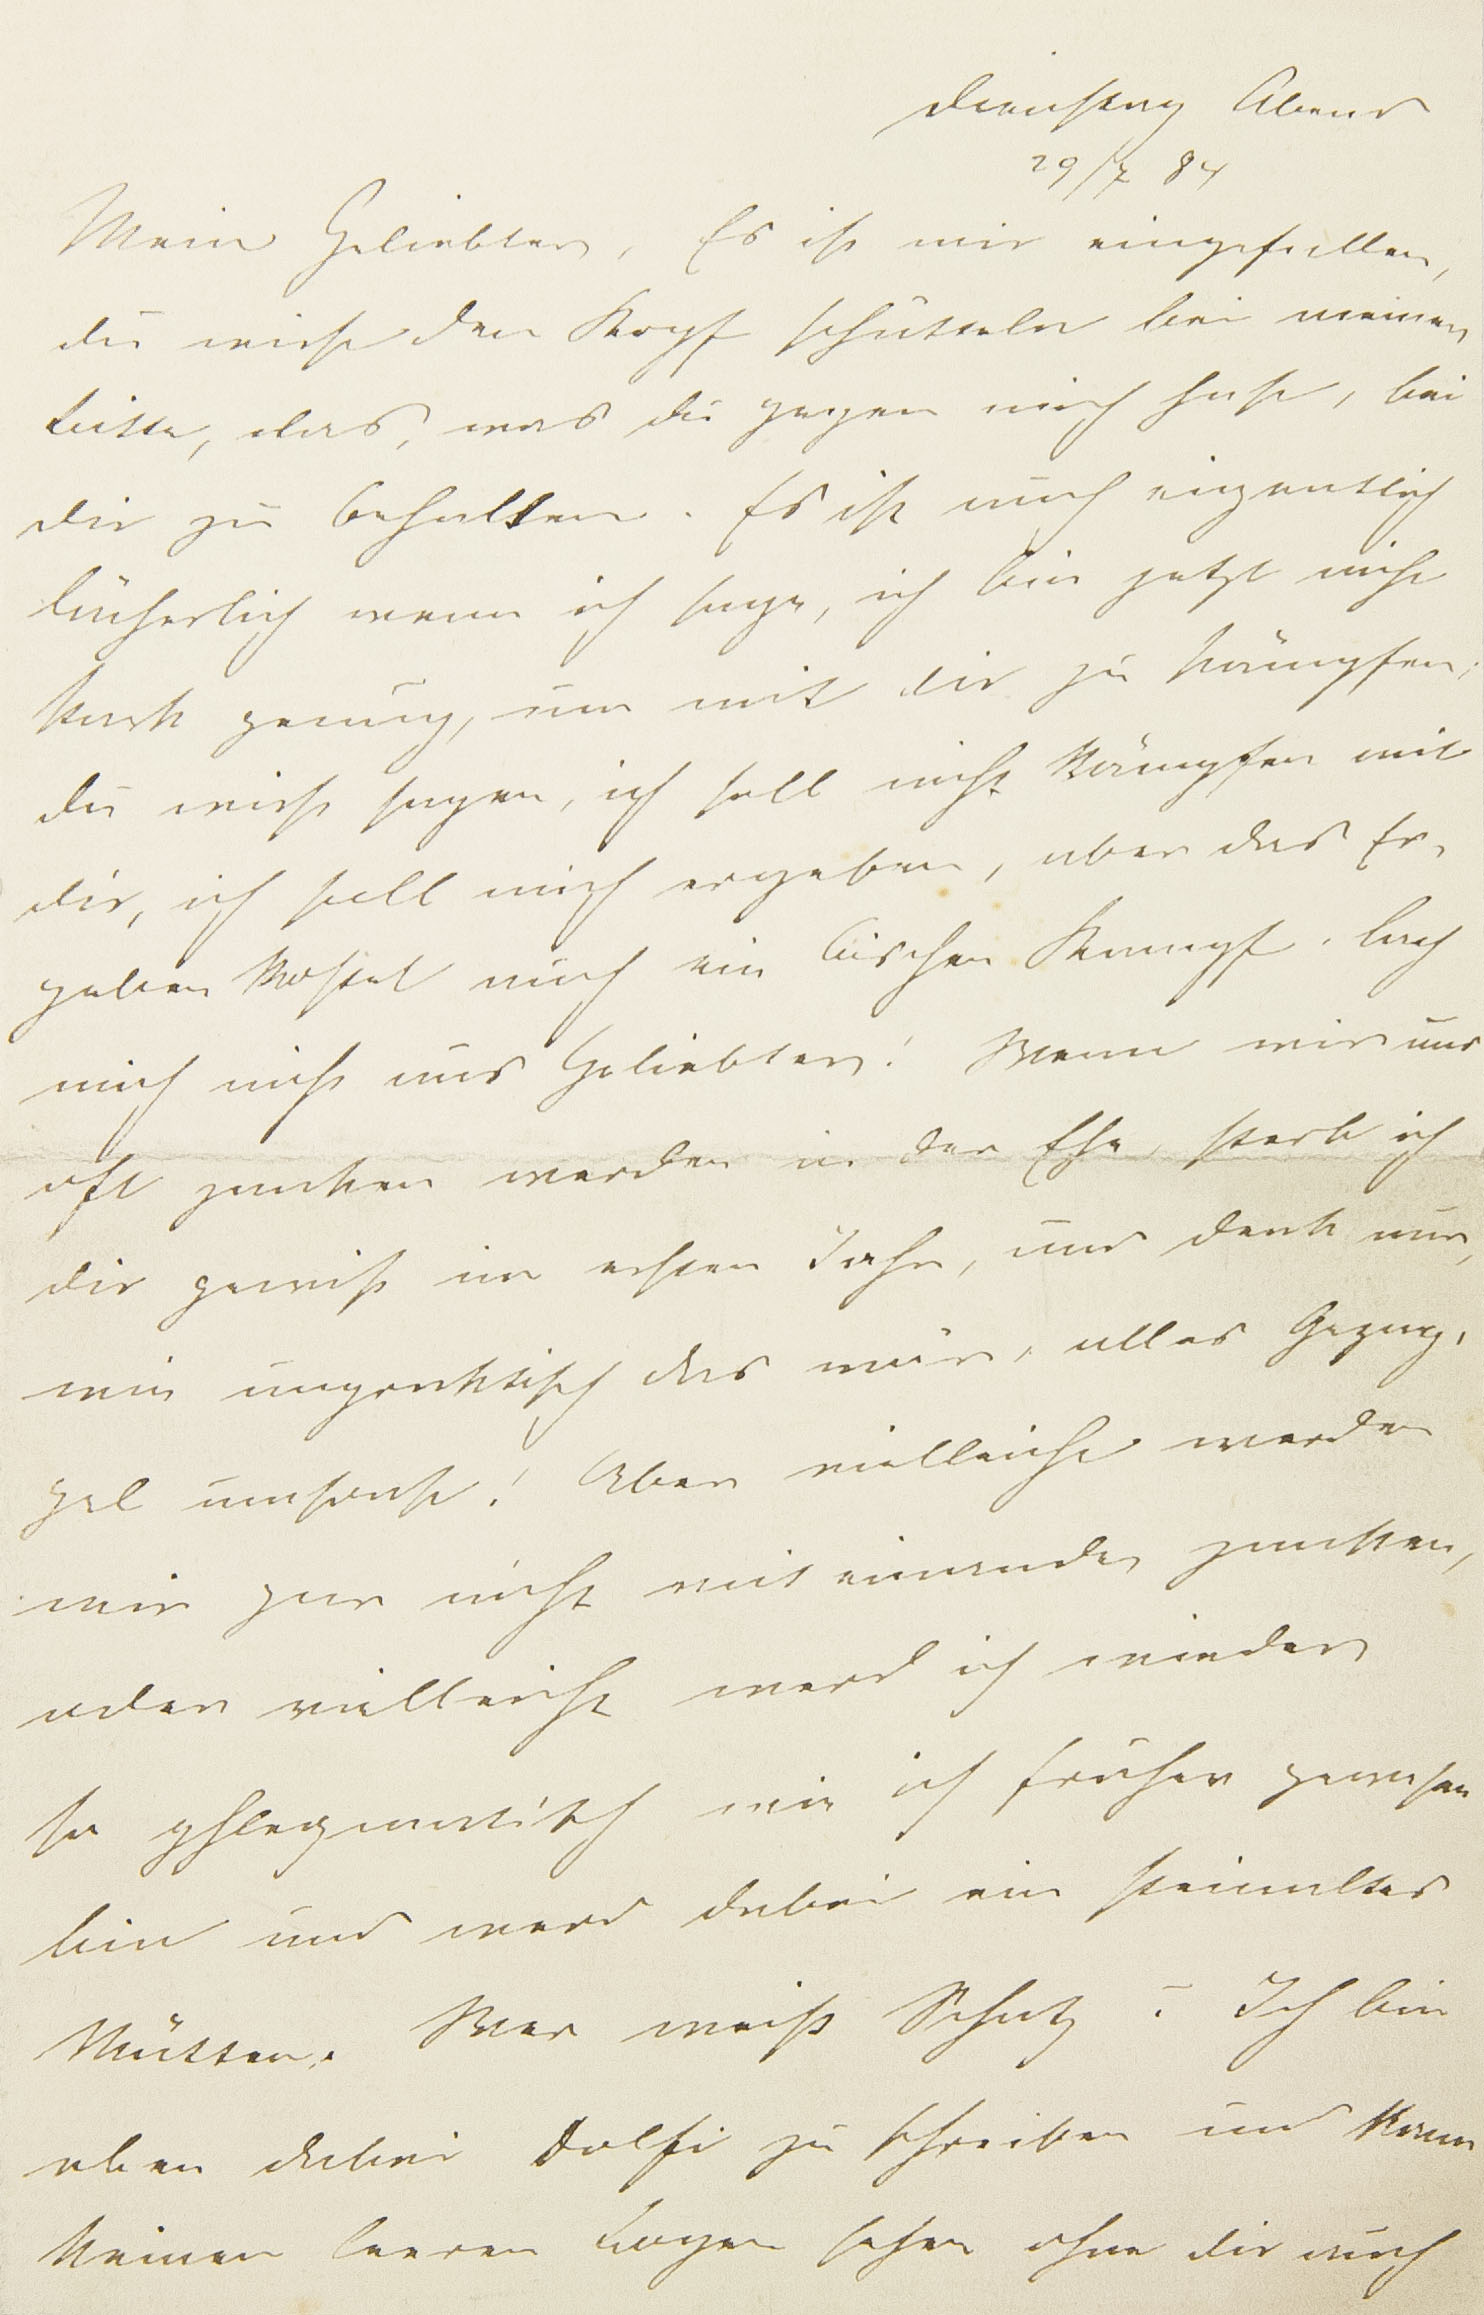 Dienstag Abend
29/7 84
Mein Geliebter, Es ist mir eingefallen,
du wirst den Kopf schütteln bei meiner
Bitte, das, was du gegen mich hast, bei
dir zu behalten. Es ist auch eigentlich
lächerlich wenn ich sage, ich bin jetzt nicht
stark genug, um mit dir zu kämpfen;
du wirst sagen, ich soll nicht kämpfen mit
dir, ich soll mich ergeben, aber das Er-
geben kostet auch ein bischen Kampf. Lach
mich nicht aus Geliebter! Wenn wir uns
oft zanken werden in der Ehe, sterb ich
dir gewiß im ersten Jahr, und denk nur,
wie unpraktisch das wär, alles Gezap-
pel umsonst! Aber vielleicht werden
wir gar nicht mit einander zanken,
oder vielleicht werd ich wieder
so phlegmatisch wie ich früher gewesen
bin und werd dabei ein steinaltes
Mütter. Wer weiß Schatz? Ich bin
eben dabei Dolfi zu schreiben und kann
keinen leeren Bogen sehen ohne dir auch